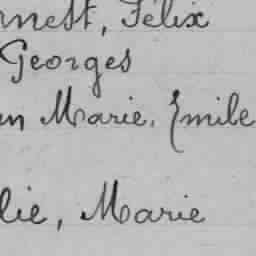 rnest, Félix
Georges
an Marie, Emile
lie, Marie